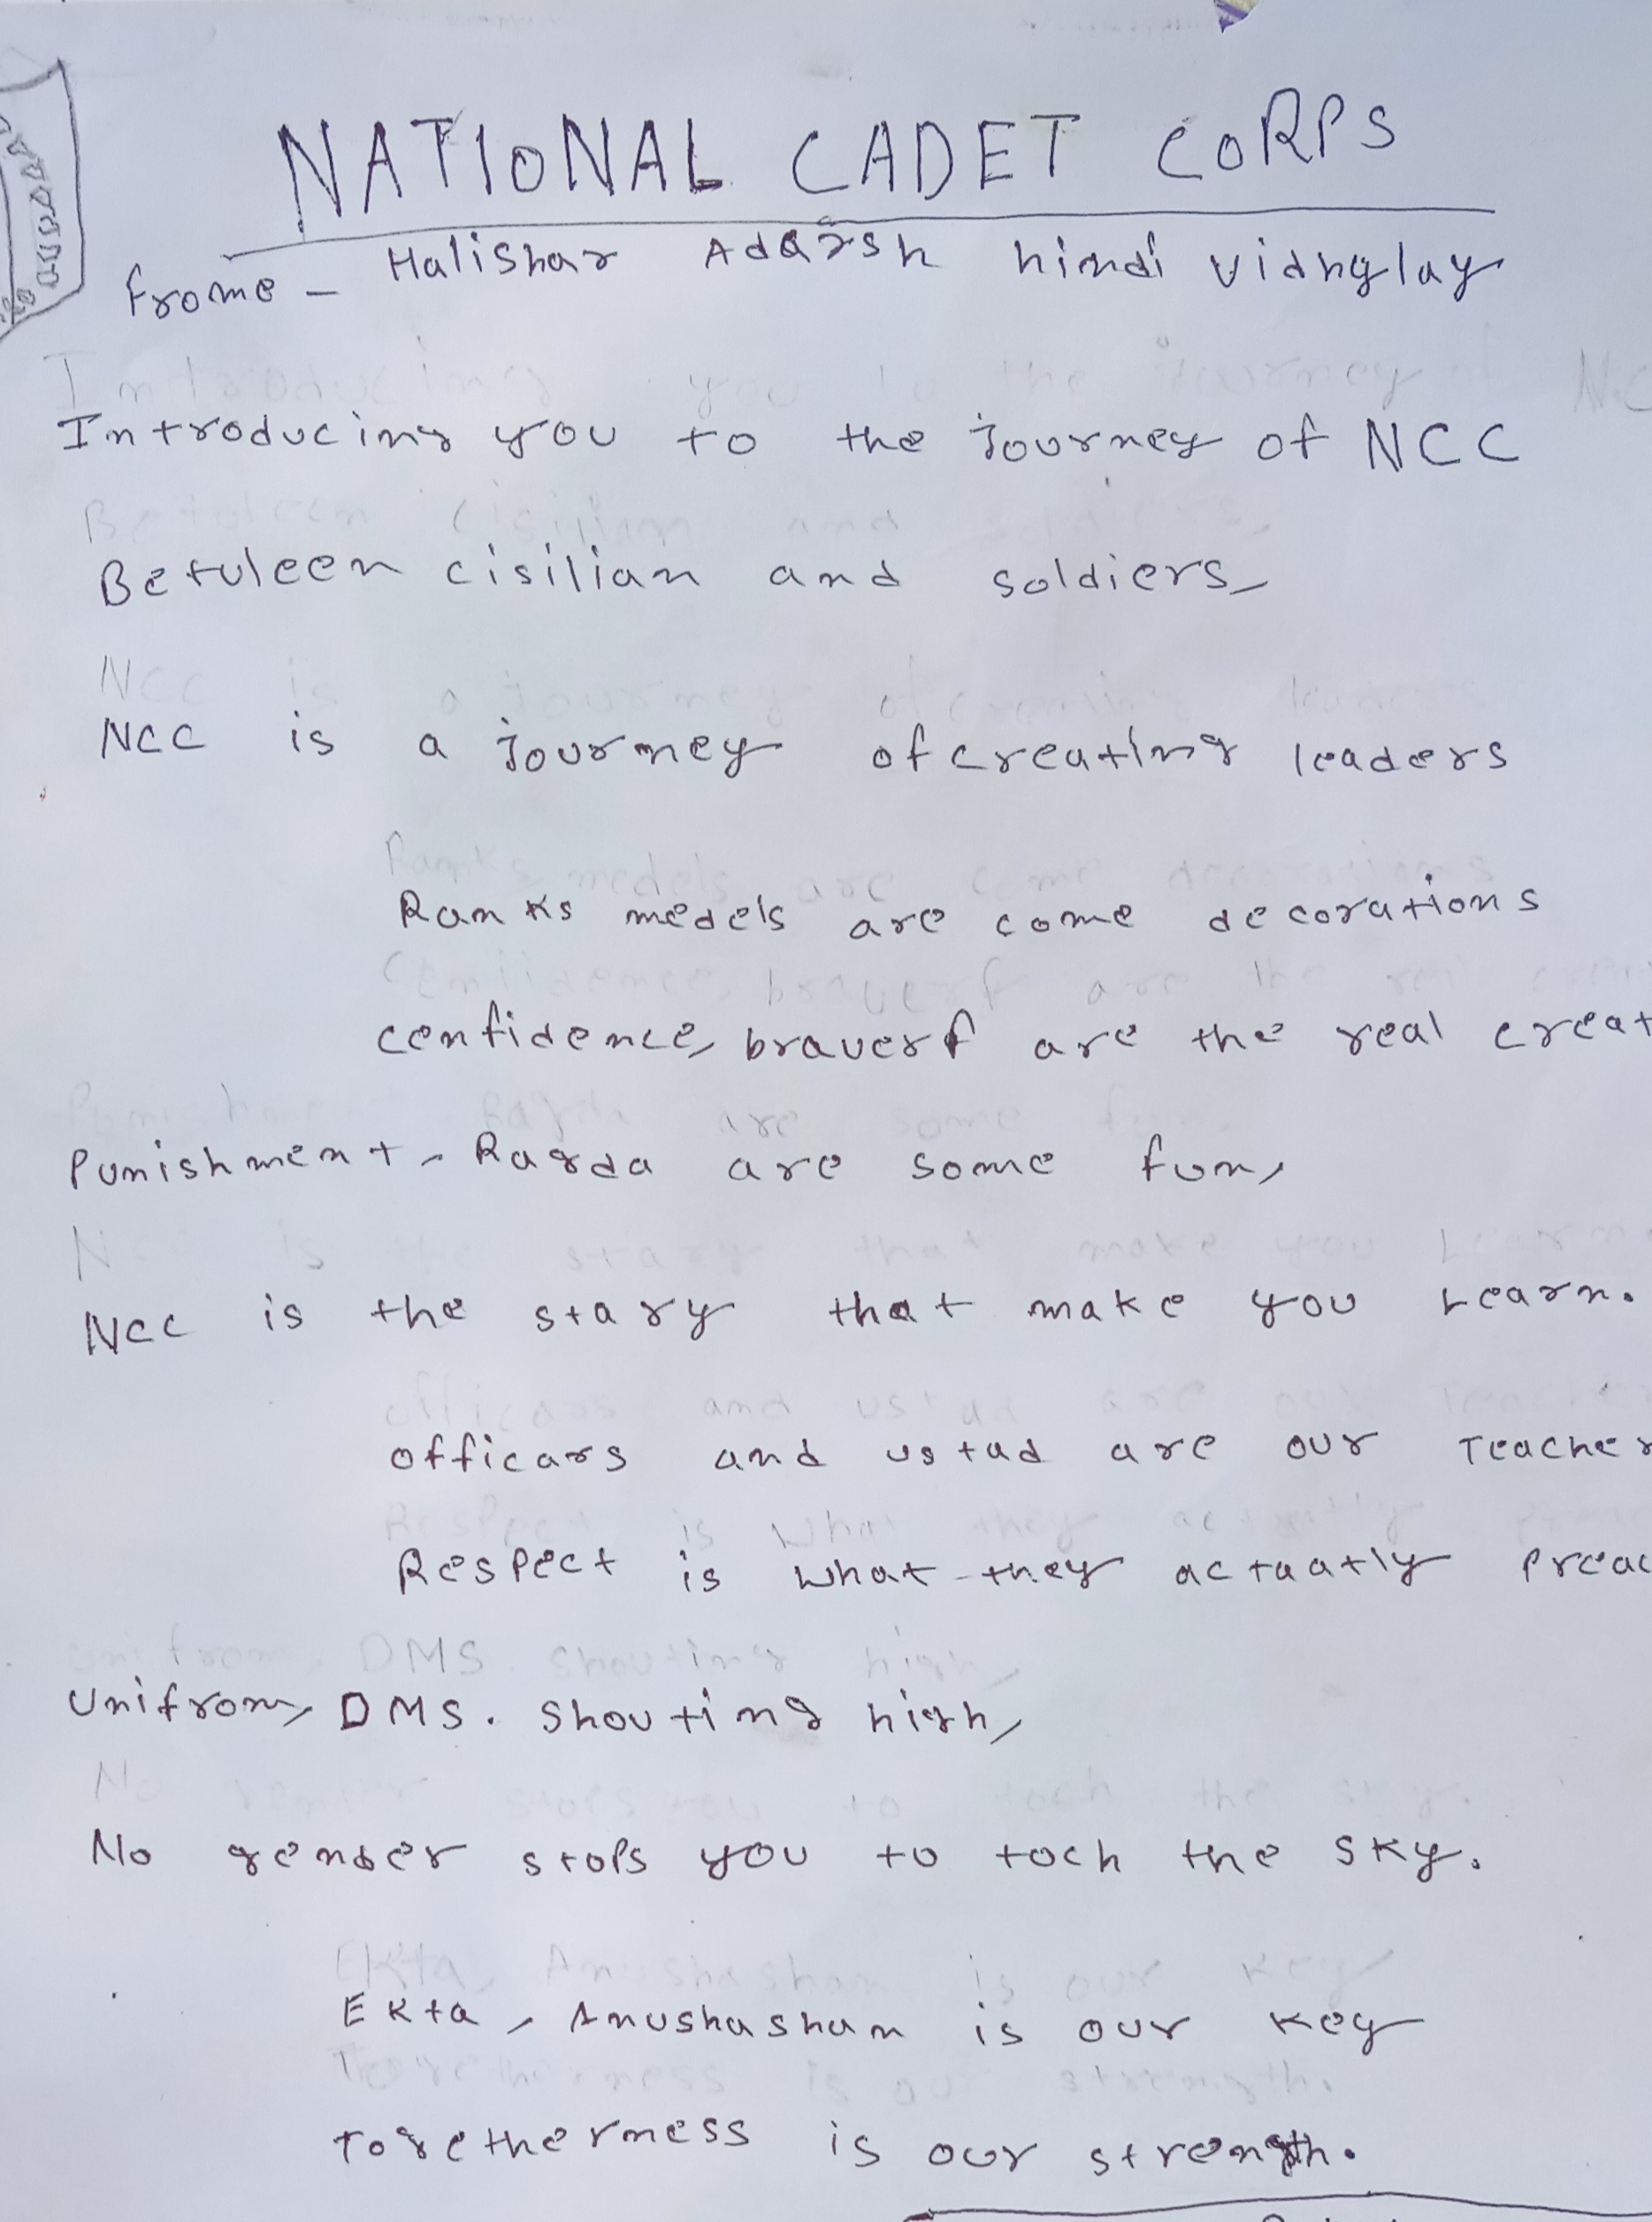 NATIONAL CADET CORPS
frome - Halishar Adarsh hindi vidhylay
Introducing you to the Journey of NCC
Betuleen cisilian and soldiers,
NCC is a Journey of creating leaders
Ranks medels are come decorations
cenfidence, braverf are the real creat
Punishment, Ragda are some fun,
NCC is the stary that make you Learn.
officars and ustad are our Teacher
Respect is what they actuatly preac
Unifrom, DMS. Shouting high,
No gender stops you to toch the sky.
Ekta, Anushashan is our key
Togetherness is our strength.